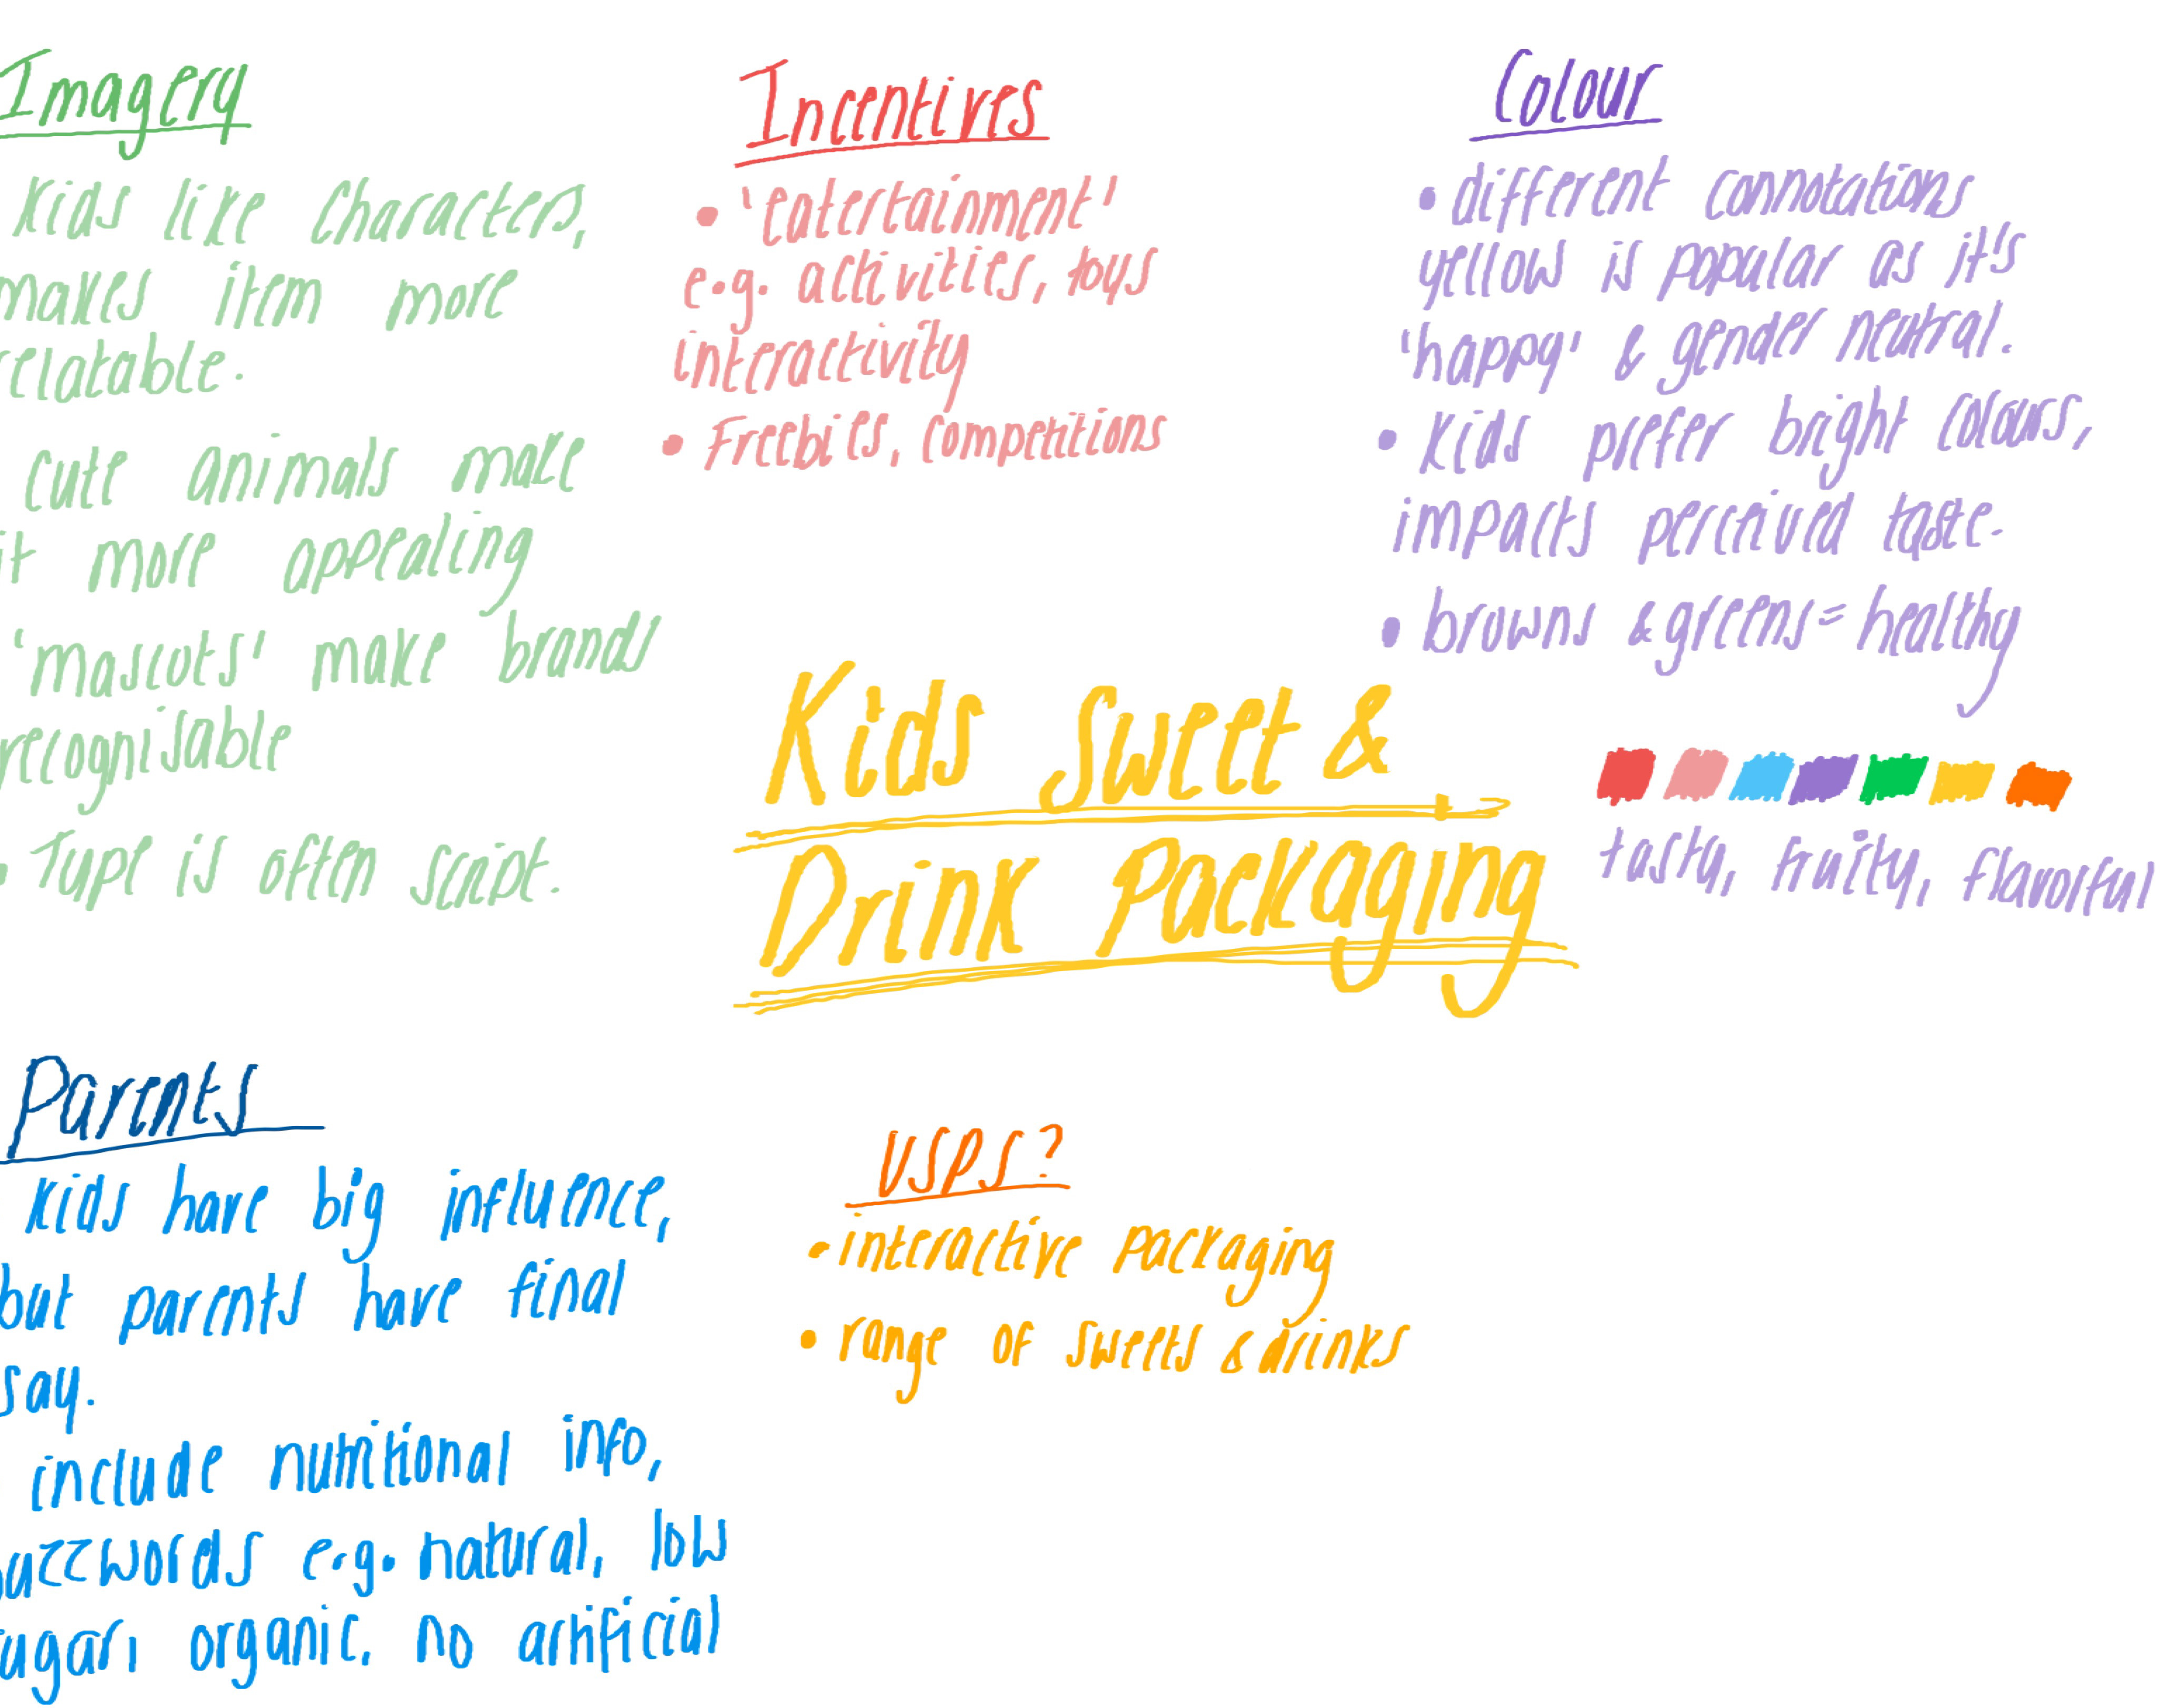 Imagery
Kids like characters,
makes item more
relatable.
cute animals make
it more appealing
'mascots' make brands
recognisable
Type is often script.
Incentives
• 'eatertainment'
e.g. activities, toys
interactivity
• Freebies, competitions
Colour
• different connotations
yellow is popular as it's
'happy' & gender neutral.
• Kids prefer bright colours,
impacts perceived taste.
• browns & greens = healthy
tasty, fruity, flavorful
Kids Sweet &
Drink Packaging
Parents
Kids have big influence,
but parents have final
say.
include nutritional info,
buzzwords e.g. natural, low
sugar, organic, no artificial
USPS?
• interactive packaging
• range of sweets & drinks